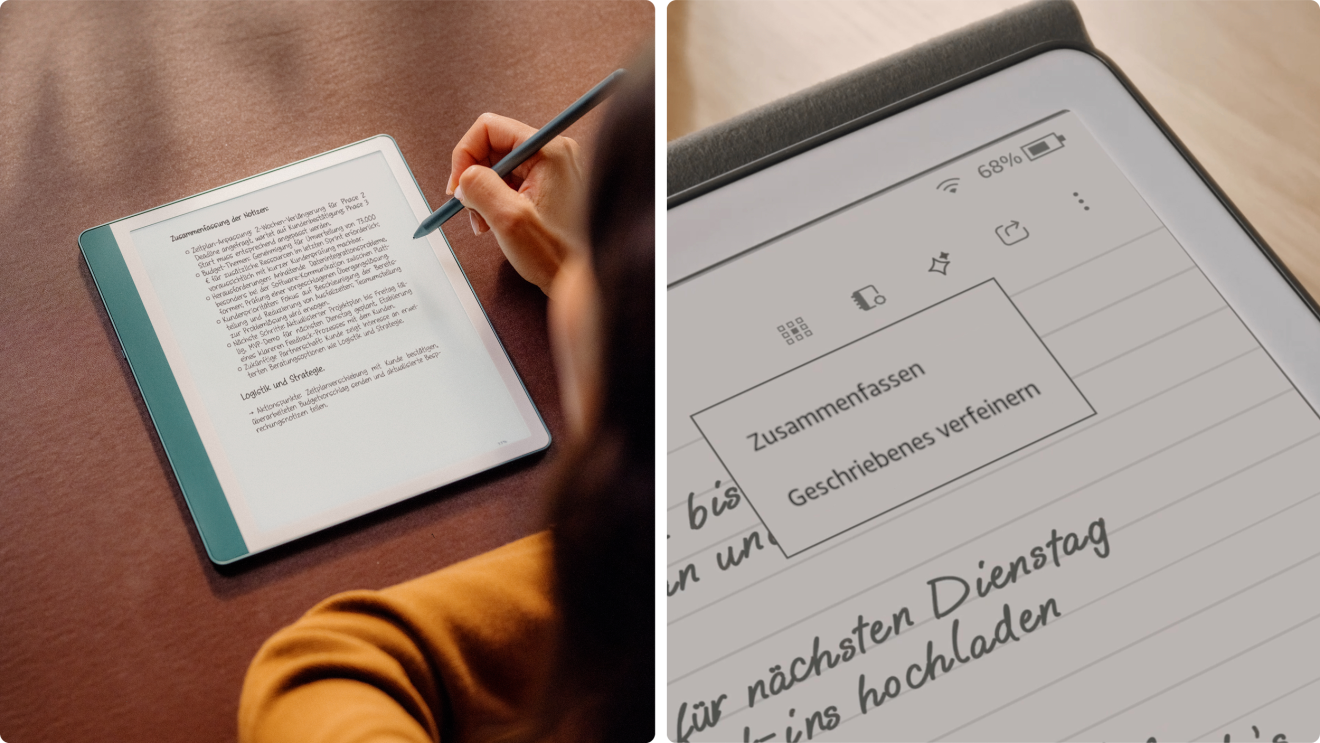 Zusammenfassung der Notizen:
○ Zeitplan-Anpassung: 2-Wochen-Verlängerung für Phase 2
Deadline angefragt; wartet auf Kundenbestätigung. Phase 3
Start muss entsprechend angepasst werden.
○ Budget-Themen: Genehmigung für Umverteilung von 73.000
€ für zusätzliche Ressourcen im letzten Sprint erforderlich;
voraussichtlich mit kurzer Kundenprüfung machbar.
○ Herausforderungen: Anhaltende Datenintegrationsprobleme,
besonders bei der Software-Kommunikation zwischen Platt-
formen; Prüfung einer vorgeschlagenen Übergangslösung.
○ Kundenprioritäten: Fokus auf Beschleunigung der Bereits-
tellung und Reduzierung von Ausfallzeiten; Teamumstellung
zur Problemlösung wird erwogen.
○ Nächste Schritte: Aktualisierter Projektplan bis Freitag fäl-
lig; MVP-Demo für nächsten Dienstag geplant; Etablierung
eines klareren Feedback-Prozesses mit dem Kunden.
○ Zukünftige Partnerschaft: Kunde zeigt Interesse an erwei-
terten Beratungsoptionen wie Logistik und Strategie.
Logistik und Strategie.
→ Aktionspunkte: Zeitplanverschiebung mit Kunde bestätigen,
überarbeiteten Budgetvorschlag senden und aktualisierte Besp-
rechungsnotizen teilen.
68%
Zusammenfassen
Geschriebenes verfeinern
bis
und
für nächsten Dienstag
-ins hochladen